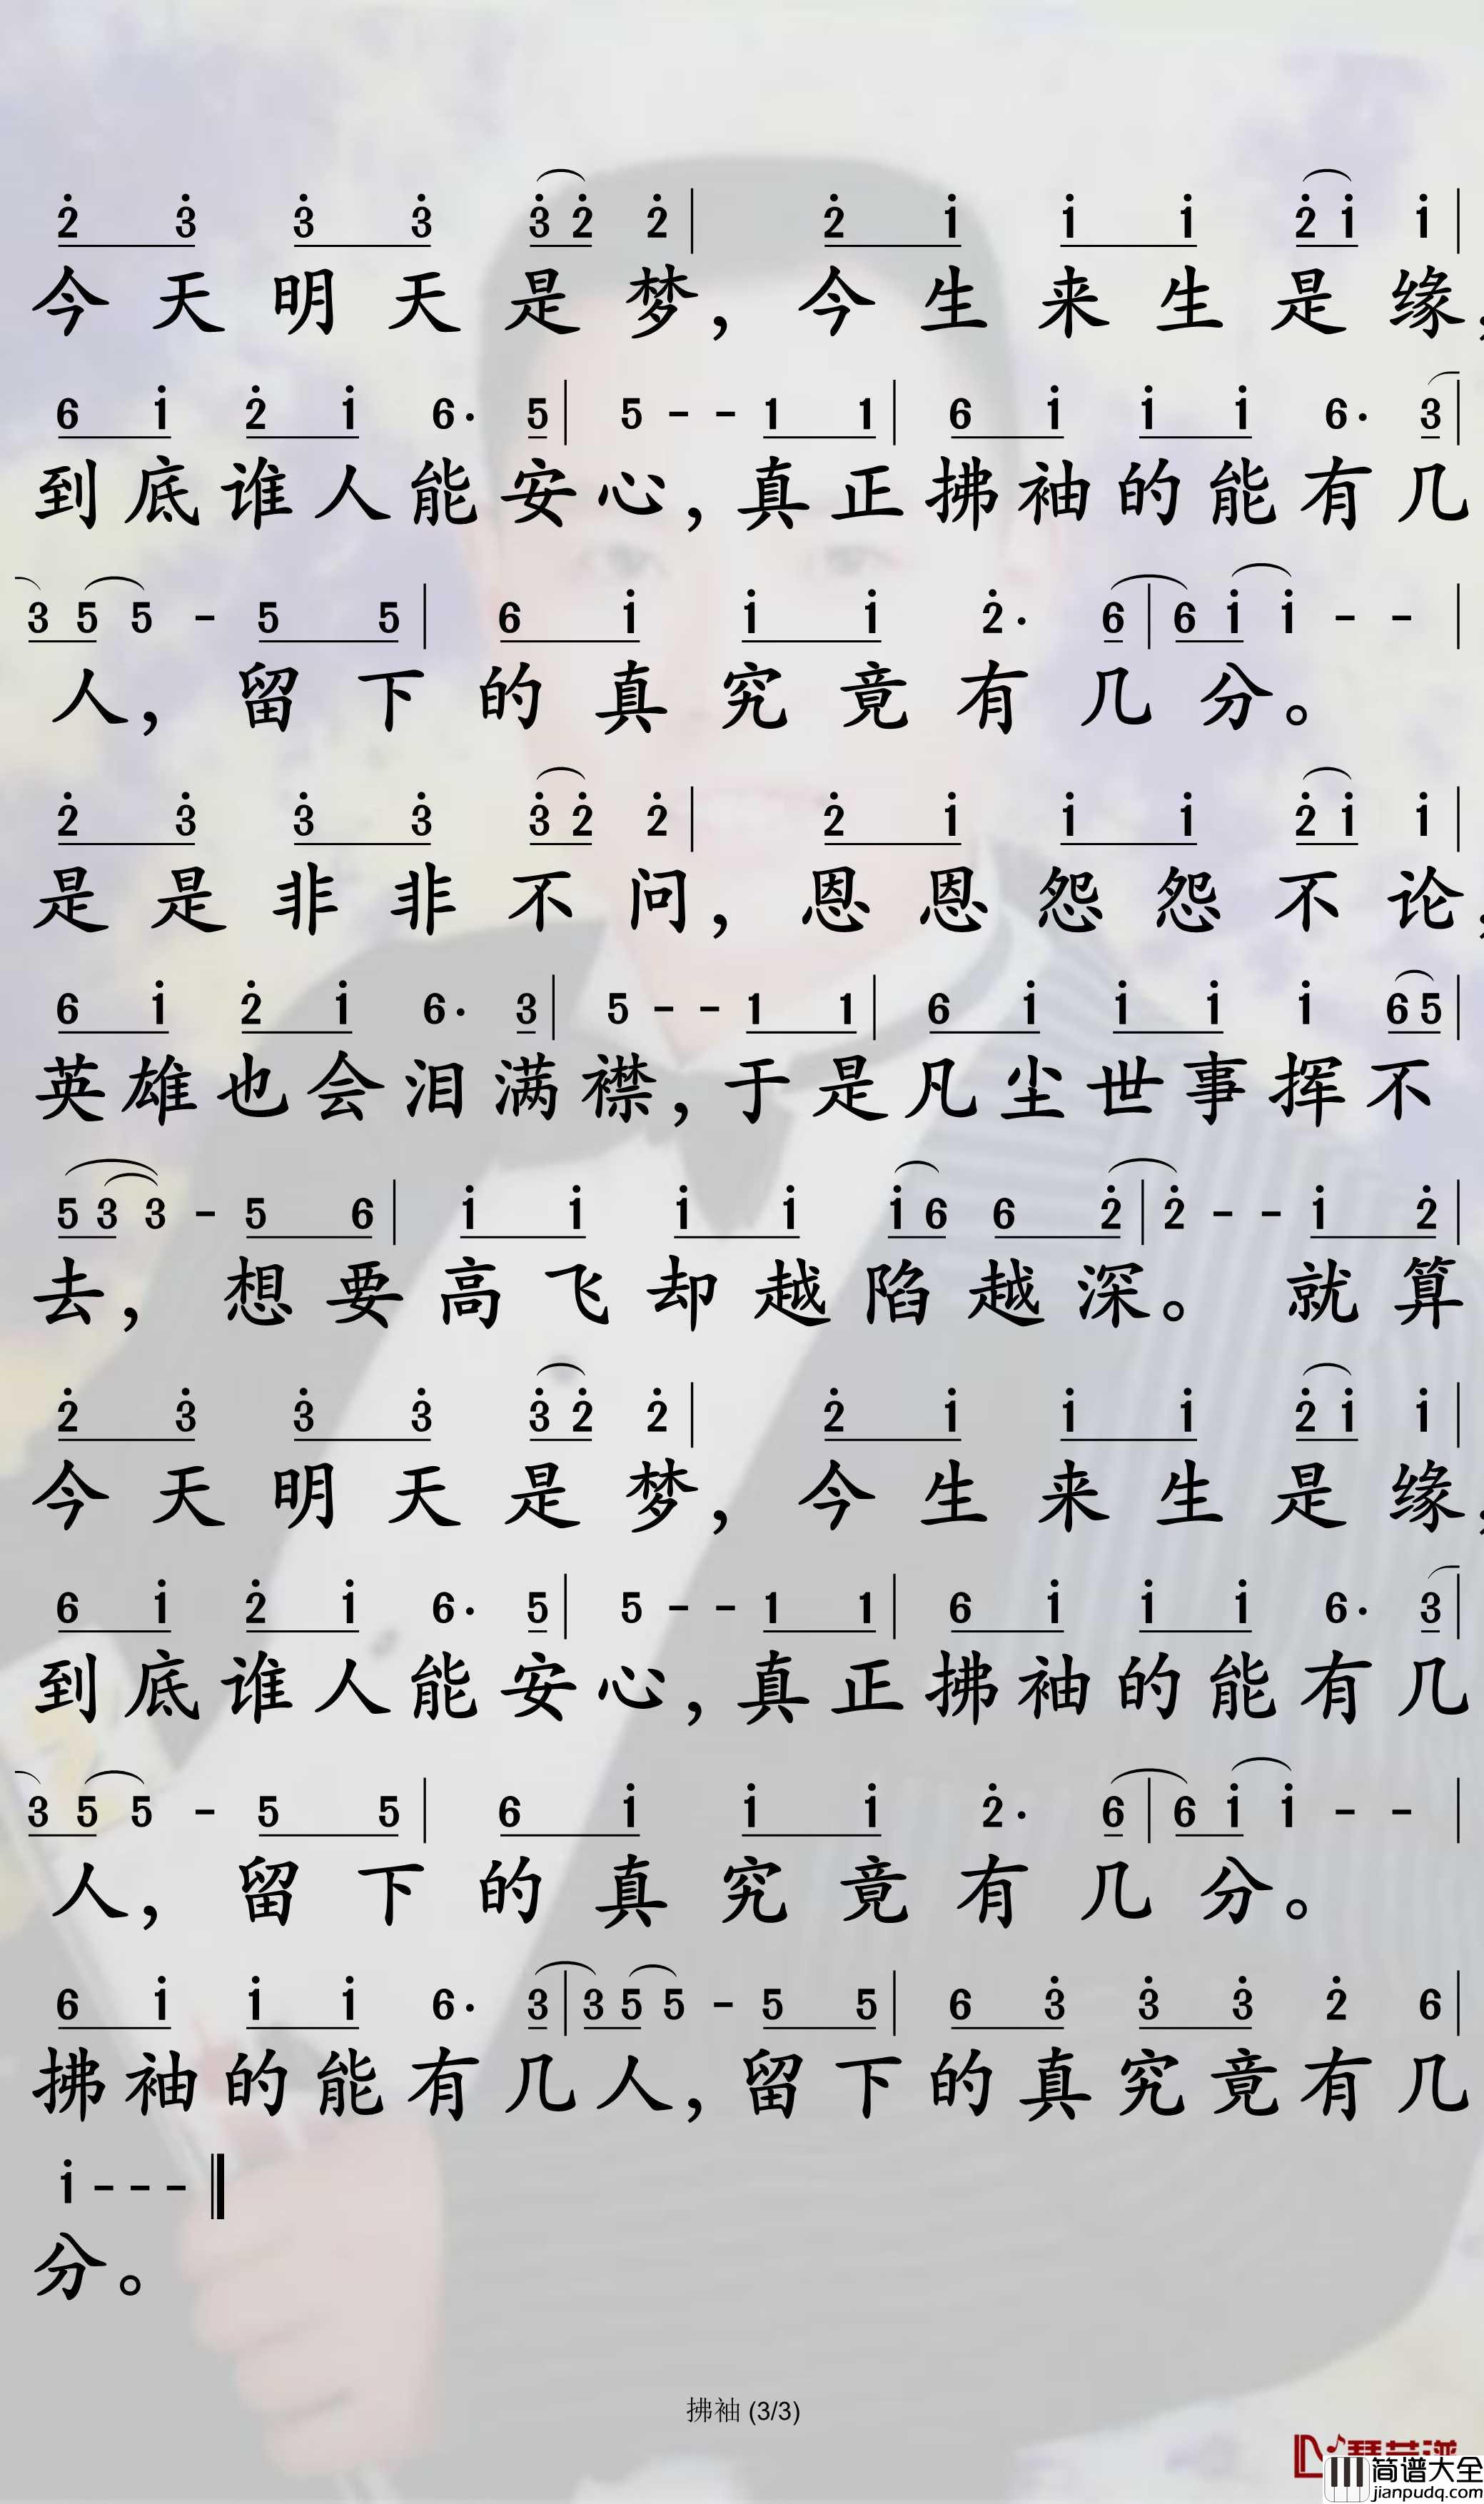 2̇ 3̇ 3̇ 3̇ 3̇ 2̇ 2̇ | 2̇ 1̇ 1̇ 1̇ 2̇ 1̇ 1̇ |
今天明天是梦，今生来生是缘，
6 1̇ 2̇ 1̇ 6· 5 | 5 - - 1 1 | 6 1̇ 1̇ 1̇ 6· 3 |
到底谁人能安心，真正拂袖的能有几
3 5 5 - 5 5 | 6 1̇ 1̇ 1̇ 2̇· 6 | 6 1̇ 1̇ - - |
人，留下的真究竟有几分。
2̇ 3̇ 3̇ 3̇ 3̇ 2̇ 2̇ | 2̇ 1̇ 1̇ 1̇ 2̇ 1̇ 1̇ |
是是非非不问，恩恩怨怨不论，
6 1̇ 2̇ 1̇ 6· 3 | 5 - - 1 1 | 6 1̇ 1̇ 1̇ 1̇ 6 5 |
英雄也会泪满襟，于是凡尘世事挥不
5 3 3 - 5 6 | 1̇ 1̇ 1̇ 1̇ 1̇ 6 6 2̇ | 2̇ - - 1̇ 2̇ |
去，想要高飞却越陷越深。就算
2̇ 3̇ 3̇ 3̇ 3̇ 2̇ 2̇ | 2̇ 1̇ 1̇ 1̇ 2̇ 1̇ 1̇ |
今天明天是梦，今生来生是缘，
6 1̇ 2̇ 1̇ 6· 5 | 5 - - 1 1 | 6 1̇ 1̇ 1̇ 6· 3 |
到底谁人能安心，真正拂袖的能有几
3 5 5 - 5 5 | 6 1̇ 1̇ 1̇ 2̇· 6 | 6 1̇ 1̇ - - |
人，留下的真究竟有几分。
6 1̇ 1̇ 1̇ 6· 3 | 3 5 5 - 5 5 | 6 3̇ 3̇ 3̇ 2̇ 6 |
拂袖的能有几人，留下的真究竟有几
1̇ - - - ‖
分。
拂袖 (3/3)
简谱大全
jianpudq.com